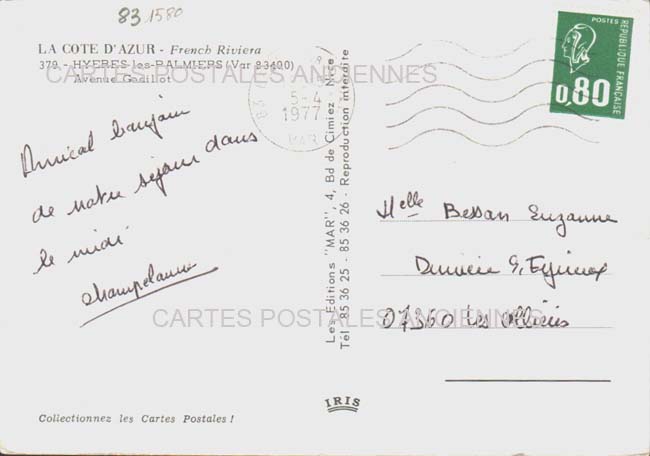 83 1580
LA COTE D'AZUR - French Riviera
379 - HYERES-les-PALMIERS (Var 83400)
Avenue Godillot
CARTES POSTALES ANCIENNES
5-4
1977
VAR
POSTES
RÉPUBLIQUE FRANÇAISE
0,80
Amical bonjour
de notre séjour dans
le midi
Les Editions "MAR", 4, Bd de Cimiez - Nice
Tél : 85 36 25 - 85 36 26 - Reproduction interdite
Melle Bessan Suzanne
Dunière S/ Eyrieux
07360 les Ollières
CARTES POSTALES ANCIENNES
IRIS
Collectionnez les Cartes Postales !